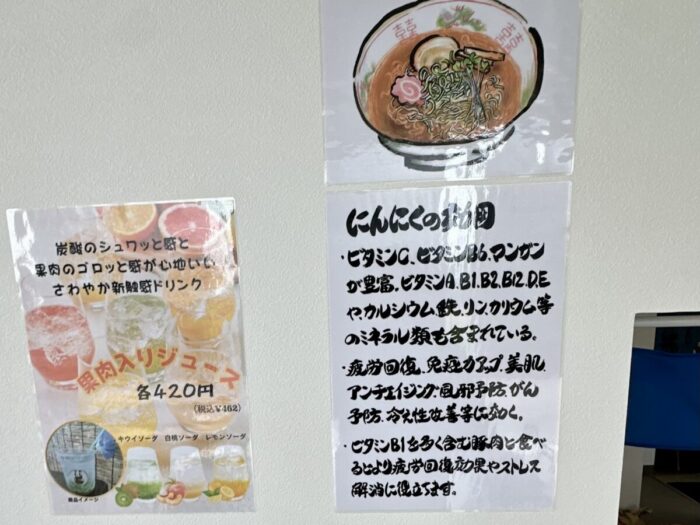 炭酸のシュワッと感と
果肉のゴロッと感が心地いい
さわやか新触感ドリンク
果肉入りジュース
各420円
(税込¥462)
キウイソーダ 白桃ソーダ レモンソーダ
商品イメージ
にんにくの効用
・ビタミンC、ビタミンB6、マンガン
が豊富。ビタミンA、B1、B2、B12、D、E
や、カルシウム、鉄、リン、カリウム、等
のミネラル類も含まれている。
・疲労回復、免疫力アップ、美肌、
アンチエイジング、風邪予防、がん
予防、冷え性改善等に効く。
・ビタミンB1を多く含む豚肉と食べ
るとより疲労回復効果やストレス
解消に役立ちます。